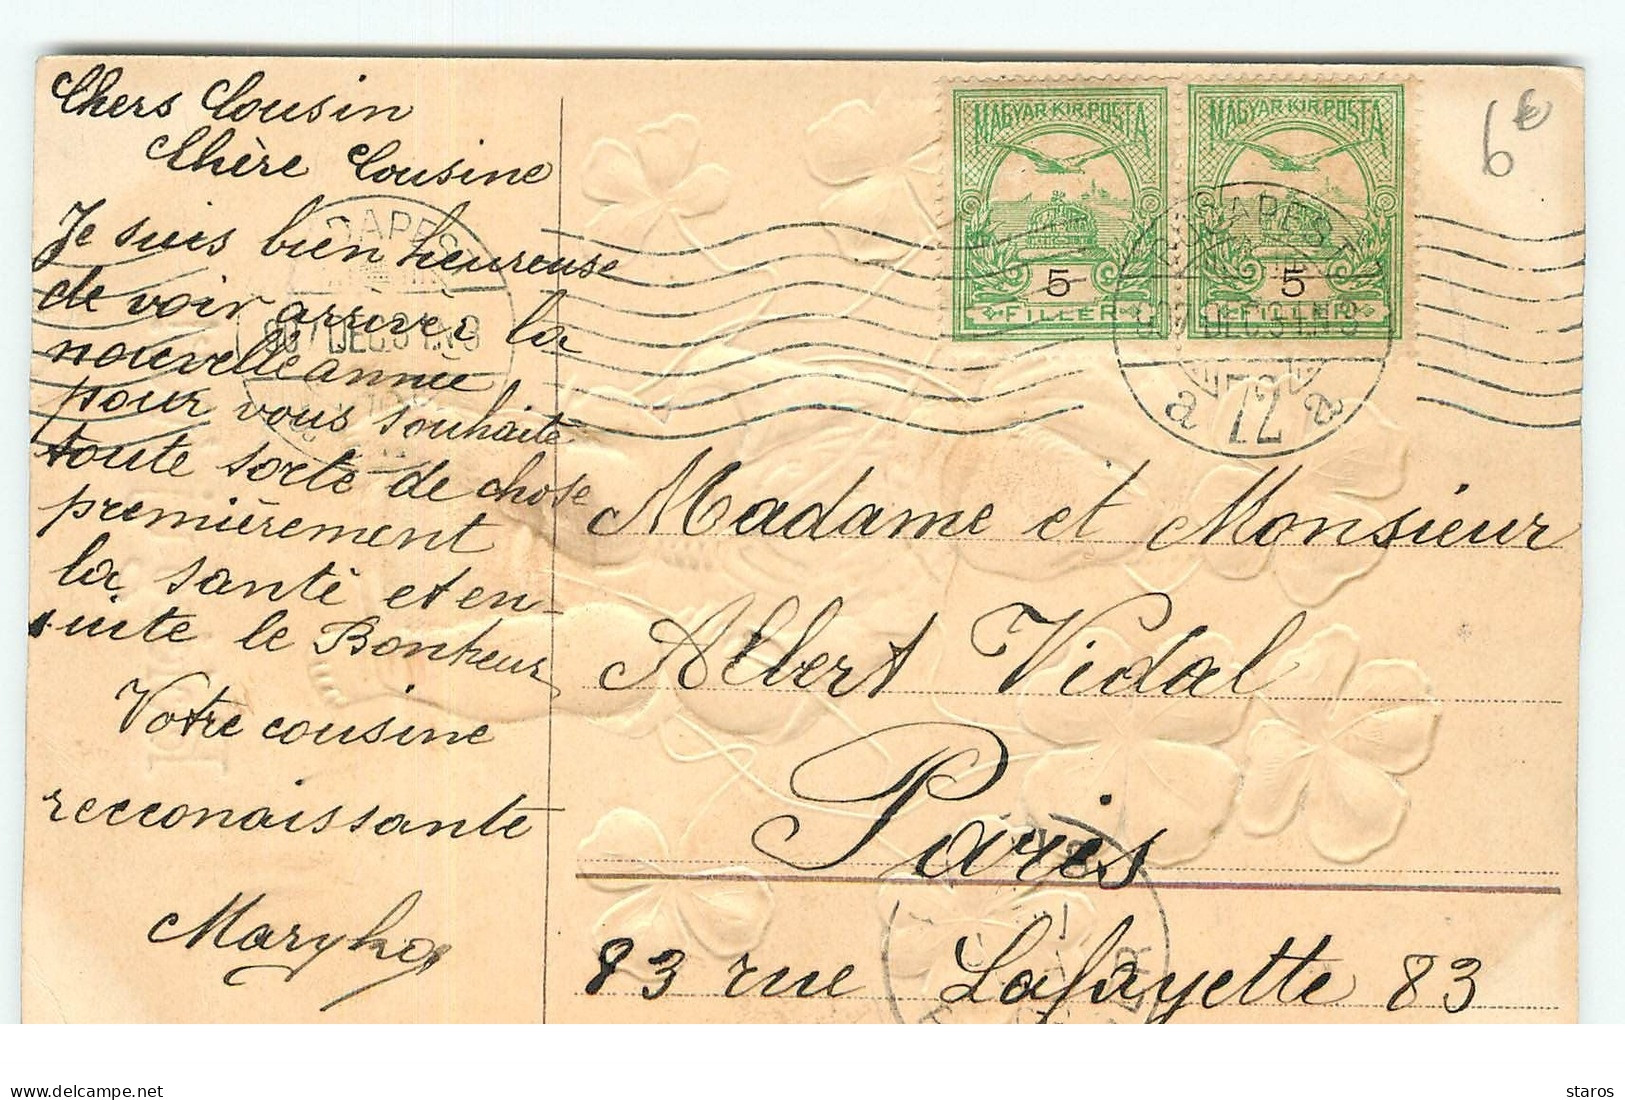 Chers Cousin
Chère Cousine
Je suis bien heureuse
de voir arriver la
nouvelle année
pour vous souhaite
toute sorte de chose
premièrement
la santé et en-
suite le Bonheur
Votre cousine
recconaissante
Maryka
MAGYAR·KIR·POSTA
5
FILLER
MAGYAR·KIR·POSTA
5
FILLER
6€
BUDAPEST
907 DEC 31 N 8
a 72 a
DAPEST
907 DEC 31 N 8
Madame et Monsieur
Albert Vidal
Paris
83 rue Lafayette 83
delcampe.net
staros